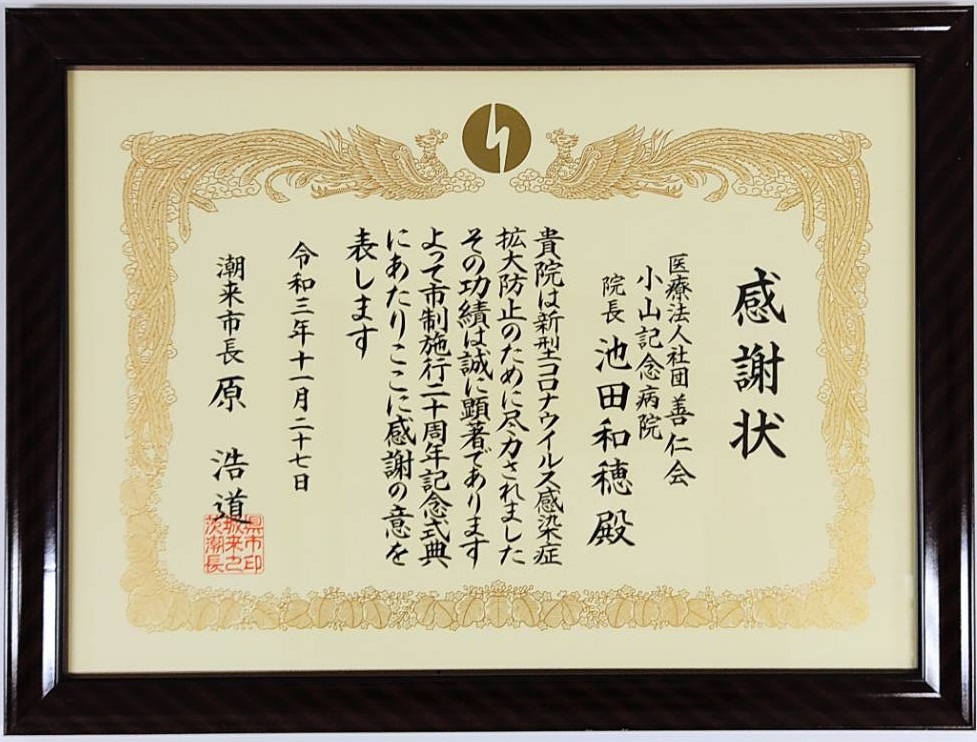 感謝状
医療法人社団 善仁会
小山記念病院
院長 池田和穂 殿
貴院は新型コロナウイルス感染症
拡大防止のために尽力されました
その功績は誠に顕著であります
よって市制施行二十周年記念式典
にあたりここに感謝の意を
表します
令和三年十一月二十七日
潮来市長 原 浩道
茨城県
潮来市
長之印